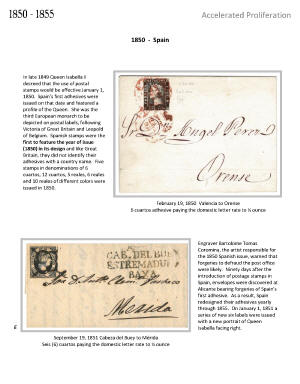 1850 - 1855
Accelerated Proliferation
1850 - Spain
In late 1849 Queen Isabella II
decreed that the use of postal
stamps would be effective January 1,
1850. Spain's first adhesives were
issued on that date and featured a
profile of the Queen. She was the
third European monarch to be
depicted on postal labels, following
Victoria of Great Britain and Leopold
of Belgium. Spanish stamps were the
first to feature the year of issue
(1850) in its design and like Great
Britain, they did not identify their
adhesives with a country name. Five
stamps in denominations of 6
cuartos, 12 cuartos, 5 reales, 6 reales
and 10 reales of different colors were
issued in 1850.
Angel Perez
Orense
February 19, 1850 Valencia to Orense
6 cuartos adhesive paying the domestic letter rate to ½ ounce
CAB. DEL BUEY
ESTREMADURA
BAJA
Merida
6
September 19, 1851 Cabeza del Buey to Mérida
Seis (6) cuartos paying the domestic letter rate to ½ ounce
Engraver Bartolome Tomas
Coromina, the artist responsible for
the 1850 Spanish issue, warned that
forgeries to defraud the post office
were likely. Ninety days after the
introduction of postage stamps in
Spain, envelopes were discovered at
Alicante bearing forgeries of Spain's
first adhesive. As a result, Spain
redesigned their adhesives yearly
through 1855. On January 1, 1851 a
series of new six labels were issued
with a new portrait of Queen
Isabella facing right.